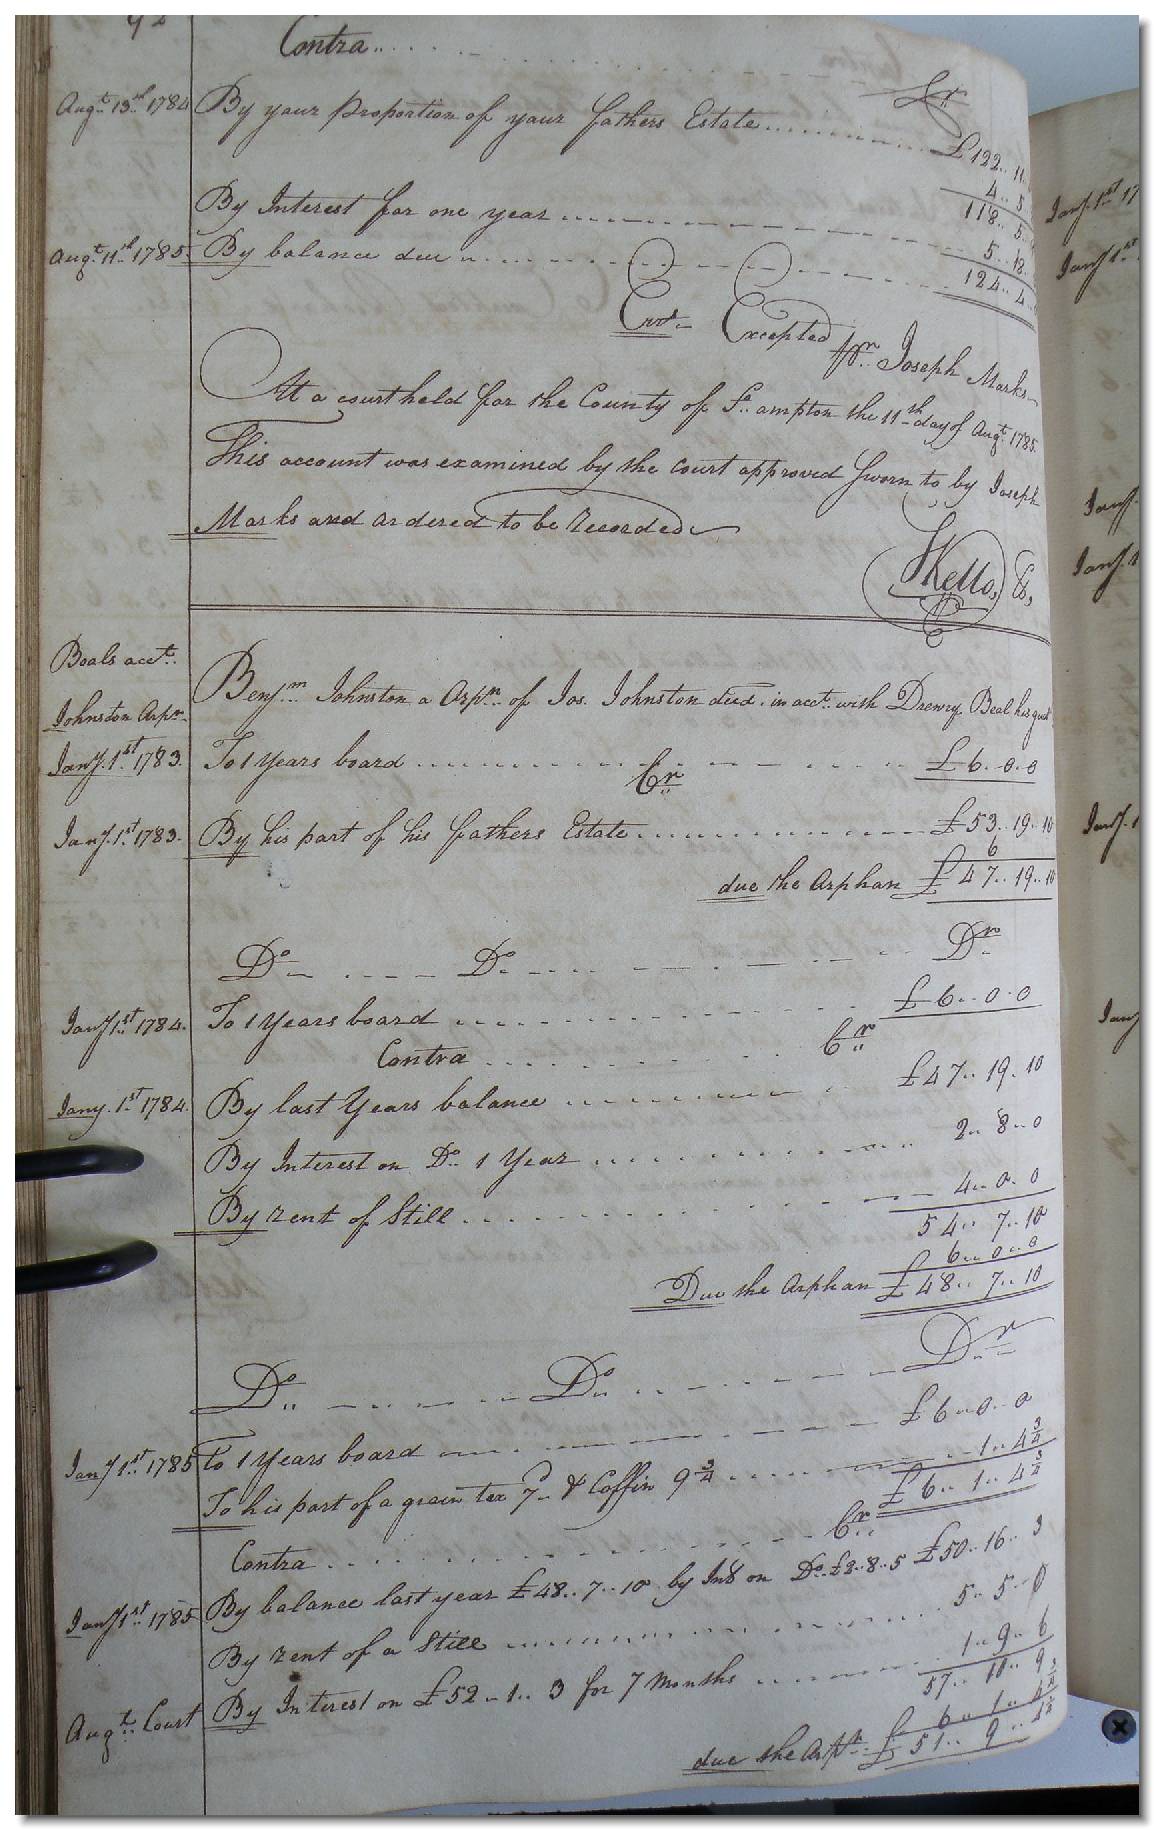 92
Contra .. Cr.
Augt. 13th 1784 By your proportion of your fathers Estate £122.. 11
4.. 5
118.. 5
By Interest for one year 5.. 18
Augt. 11th 1785. By balance due 124.. 4
Err. Excepted
pr. Joseph Marks
At a court held for the County of So.ampton the 11th day of Augt. 1785.
This account was examined by the court approved Sworn to by Joseph
Marks and ordered to be Recorded
Kello, C,
Beals acct.
Johnston Orpn. Benjm. Johnston a Orpn. of Jos. Johnston decd. in acct. with Drewry Beal his gud
Jany. 1st 1783. To 1 Years board £6..0..0
Cr
Jany. 1st 1783. By his part of his fathers Estate £53..19..10
6
due the Orphan £47..19..10
Do Do Dr
Jany 1st 1784. To 1 Years board £6..0..0
Contra Cr
Jany. 1st 1784. By last Years balance £47..19..10
By Interest on Do. 1 Year 2..8..0
By rent of Still 4..0..0
54..7..10
6..0..0
Due the Orphan £48..7..10
Do. Do. Dr
Jany 1st 1785 To 1 Years board £6..0..0
To his part of a grain tax 7d & Coffin 9¾ 1..4¾
£6..1..4¾
Contra Cr
Jany 1st 1785 By balance last year £48..7..10 by Int on Do. £2..8..5 £50..16..3
By rent of a Still 5..5..0
By Interest on £52..1..3 for 7 Months 1..9..6
Augt. Court 57..10..9
6..1..4¾
due the Orpn. £51..9..4¼
Jany. 1st 17
Jany 1st
Jany
Jany. 1
Jany. 1
Jany